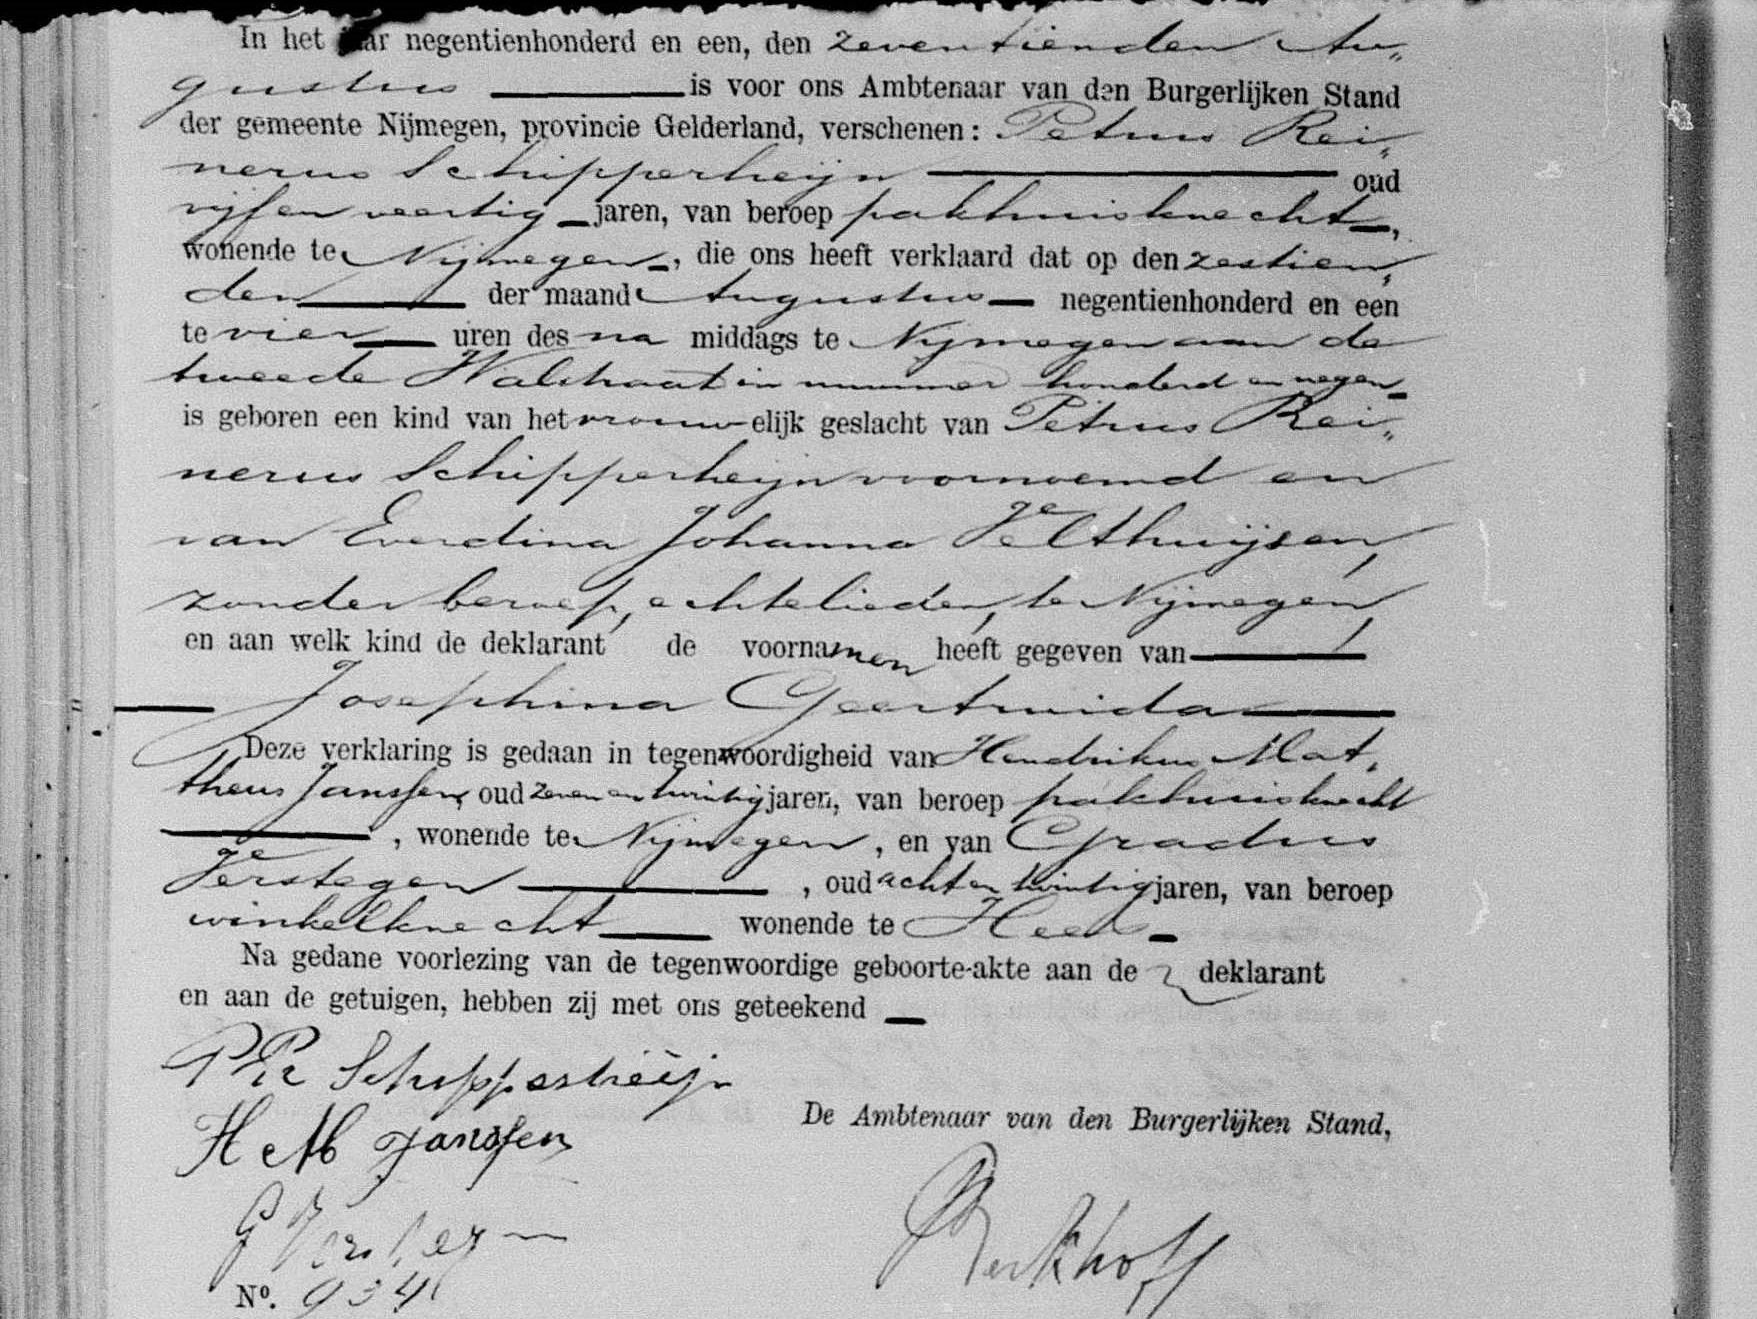 In het jaar negentienhonderd en een, den zeventienden Au„
gustus is voor ons Ambtenaar van den Burgerlijken Stand
der gemeente Nijmegen, provincie Gelderland, verschenen: Petrus Rei„
nerus Schipperheijn oud
vijf en veertig jaren, van beroep pakhuisknecht,
wonende te Nijmegen, die ons heeft verklaard dat op den zestien„
den der maand Augustus negentienhonderd en een
te vier uren des na middags te Nijmegen aan de
tweede Walstraat in nummer honderd en negen
is geboren een kind van het vrouwelijk geslacht van Petrus Rei„
nerus Schipperheijn voornoemd en
van Everdina Johanna Velthuijsen,
zonder beroep, echtelieden, te Nijmegen,
en aan welk kind de deklarant de voornamen heeft gegeven van
Josephina Geertruida
Deze verklaring is gedaan in tegenwoordigheid van Hendrikus Mat„
theus Janssen, oud zeven en twintig jaren, van beroep pakhuisknecht
, wonende te Nijmegen, en van Gradus
Verstegen, oud acht en twintig jaren, van beroep
winkelknecht wonende te Hees
Na gedane voorlezing van de tegenwoordige geboorte-akte aan de deklarant
en aan de getuigen, hebben zij met ons geteekend
P R Schipperheijn
H M Janssen
De Ambtenaar van den Burgerlijken Stand,
G Verstegen
Berkhoff
No. 934